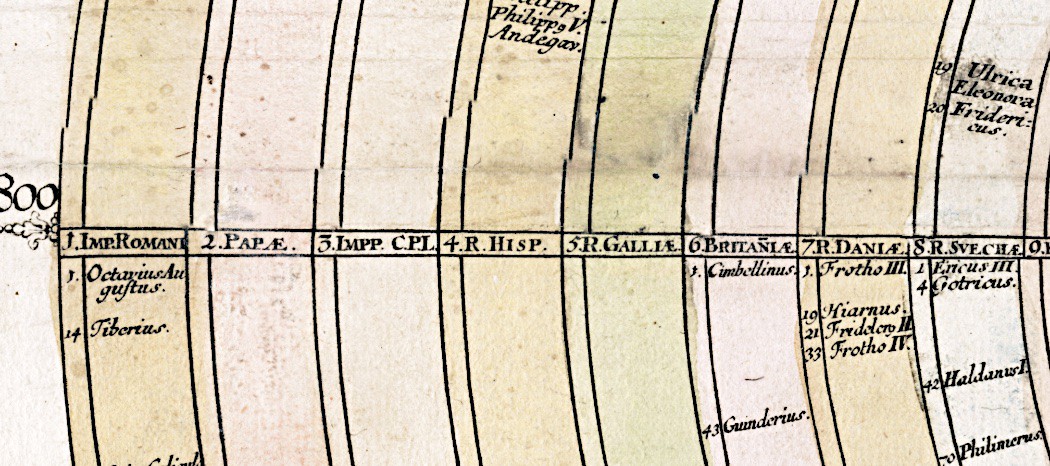 Philippꝰ V.
Andegav.
19 Ulrica
Eleonora
20 Frideri:
cus.
800
1. IMP. ROMANI
2. PAPÆ.
3. IMPP. CPL.
4. R. HISP.
5. R. GALLIÆ.
6. BRITAÑIÆ.
7. R. DANIÆ.
8. R. SVECHÆ.
9.
1. Octavius Au
gustus.
14 Tiberius.
1. Cimbellinus.
43 Guinderius.
1. Frotho III.
19 Hiarnus.
21
33 Frotho IV.
1 Ericus III.
4 Gotricus.
42 Haldanus I.
Philimerus.